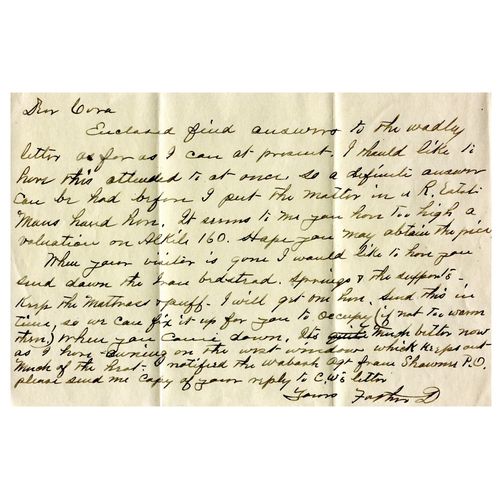 Dear Cora
Enclosed find answers to the Wadley
letter as far as I can at present. I should like to
have this attended to at once so a definite answer
can be had before I put the matter in a R. Estate
Mans hand here. It seems to me you have too high a
valuation on 160. Hope you may obtain the price
When your visitor is gone I would like to have you
send down the Iron bedstead. Springs & the supports -
Keep the Mattress & puff. I will get one here. Send this in
time, so we can fix it up for you to occupy (if not too warm
then) when you come down. Its much better now
as I have awning on the west window which keeps out
Much of the heat - I notified the Wabash agt from Shawnee P.O.
please send me Copy of your reply to C.W's letter
Yours Father D